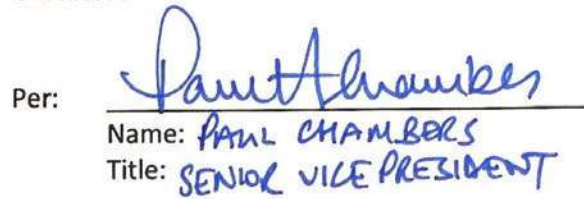 Per: Paul Chambers
Name: PAUL CHAMBERS
Title: SENIOR VICE PRESIDENT